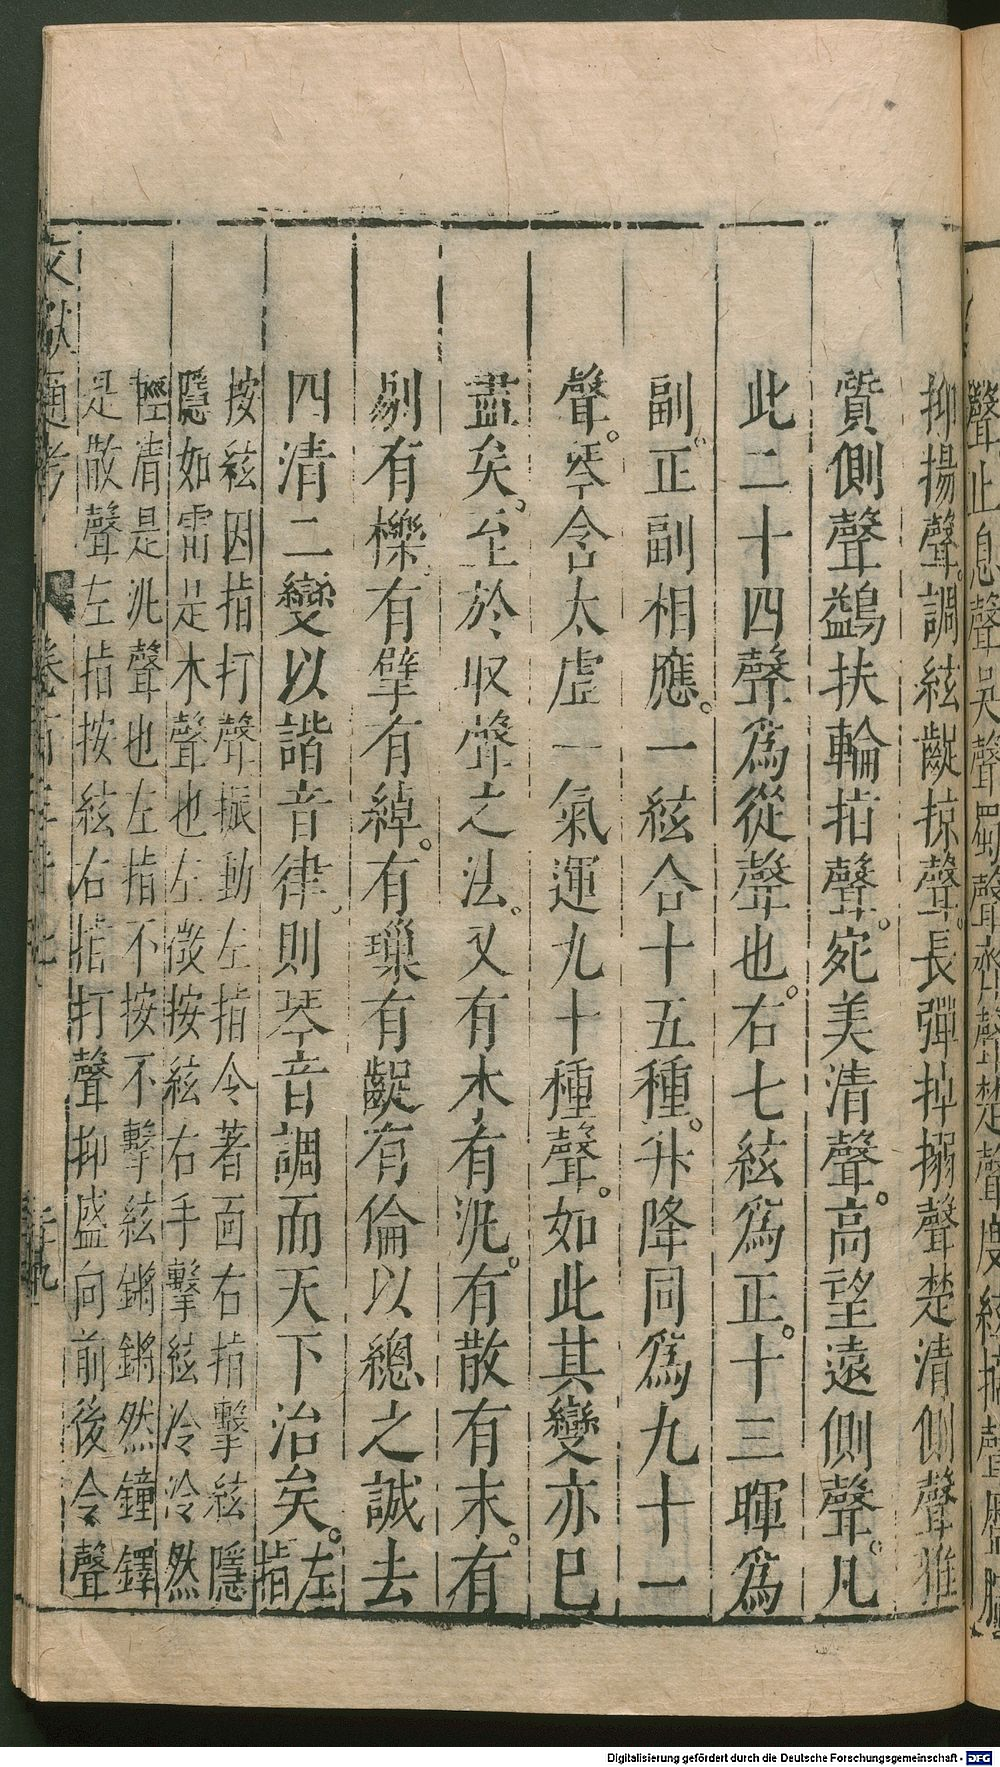 聲止息聲吳聲蜀聲
抑揚聲。調絃齪掠聲。長彈掉搦聲楚清側聲雅
質側聲鷁扶輪㨖聲。宛美清聲。高望遠側聲。凡
此二十四聲爲從聲也。右七絃爲正。十三暉爲
副。正副相應。一絃合十五種。升降同爲九十一
聲。琴含太虛一氣運九十種聲。如此其變亦已
盡矣。至於収聲之法。又有木有泛。有散有末。有
剔有櫟。有擘有綽。有璅有齪有倫以總之誠去
四清二變以諧音律、則琴音調而天下治矣。左指
按絃因指打聲振動左指令著面右指擊絃隱
隱如雷是木聲也左微按絃右手擊絃冷冷然
輕清是泛聲也左指不按不擊絃鏘鏘然鐘鐸
是散聲左指按絃右指打聲抑盛向前後令聲
文獻通考 卷百三十七 三十九
Digitalisierung gefördert durch die Deutsche Forschungsgemeinschaft - DFG